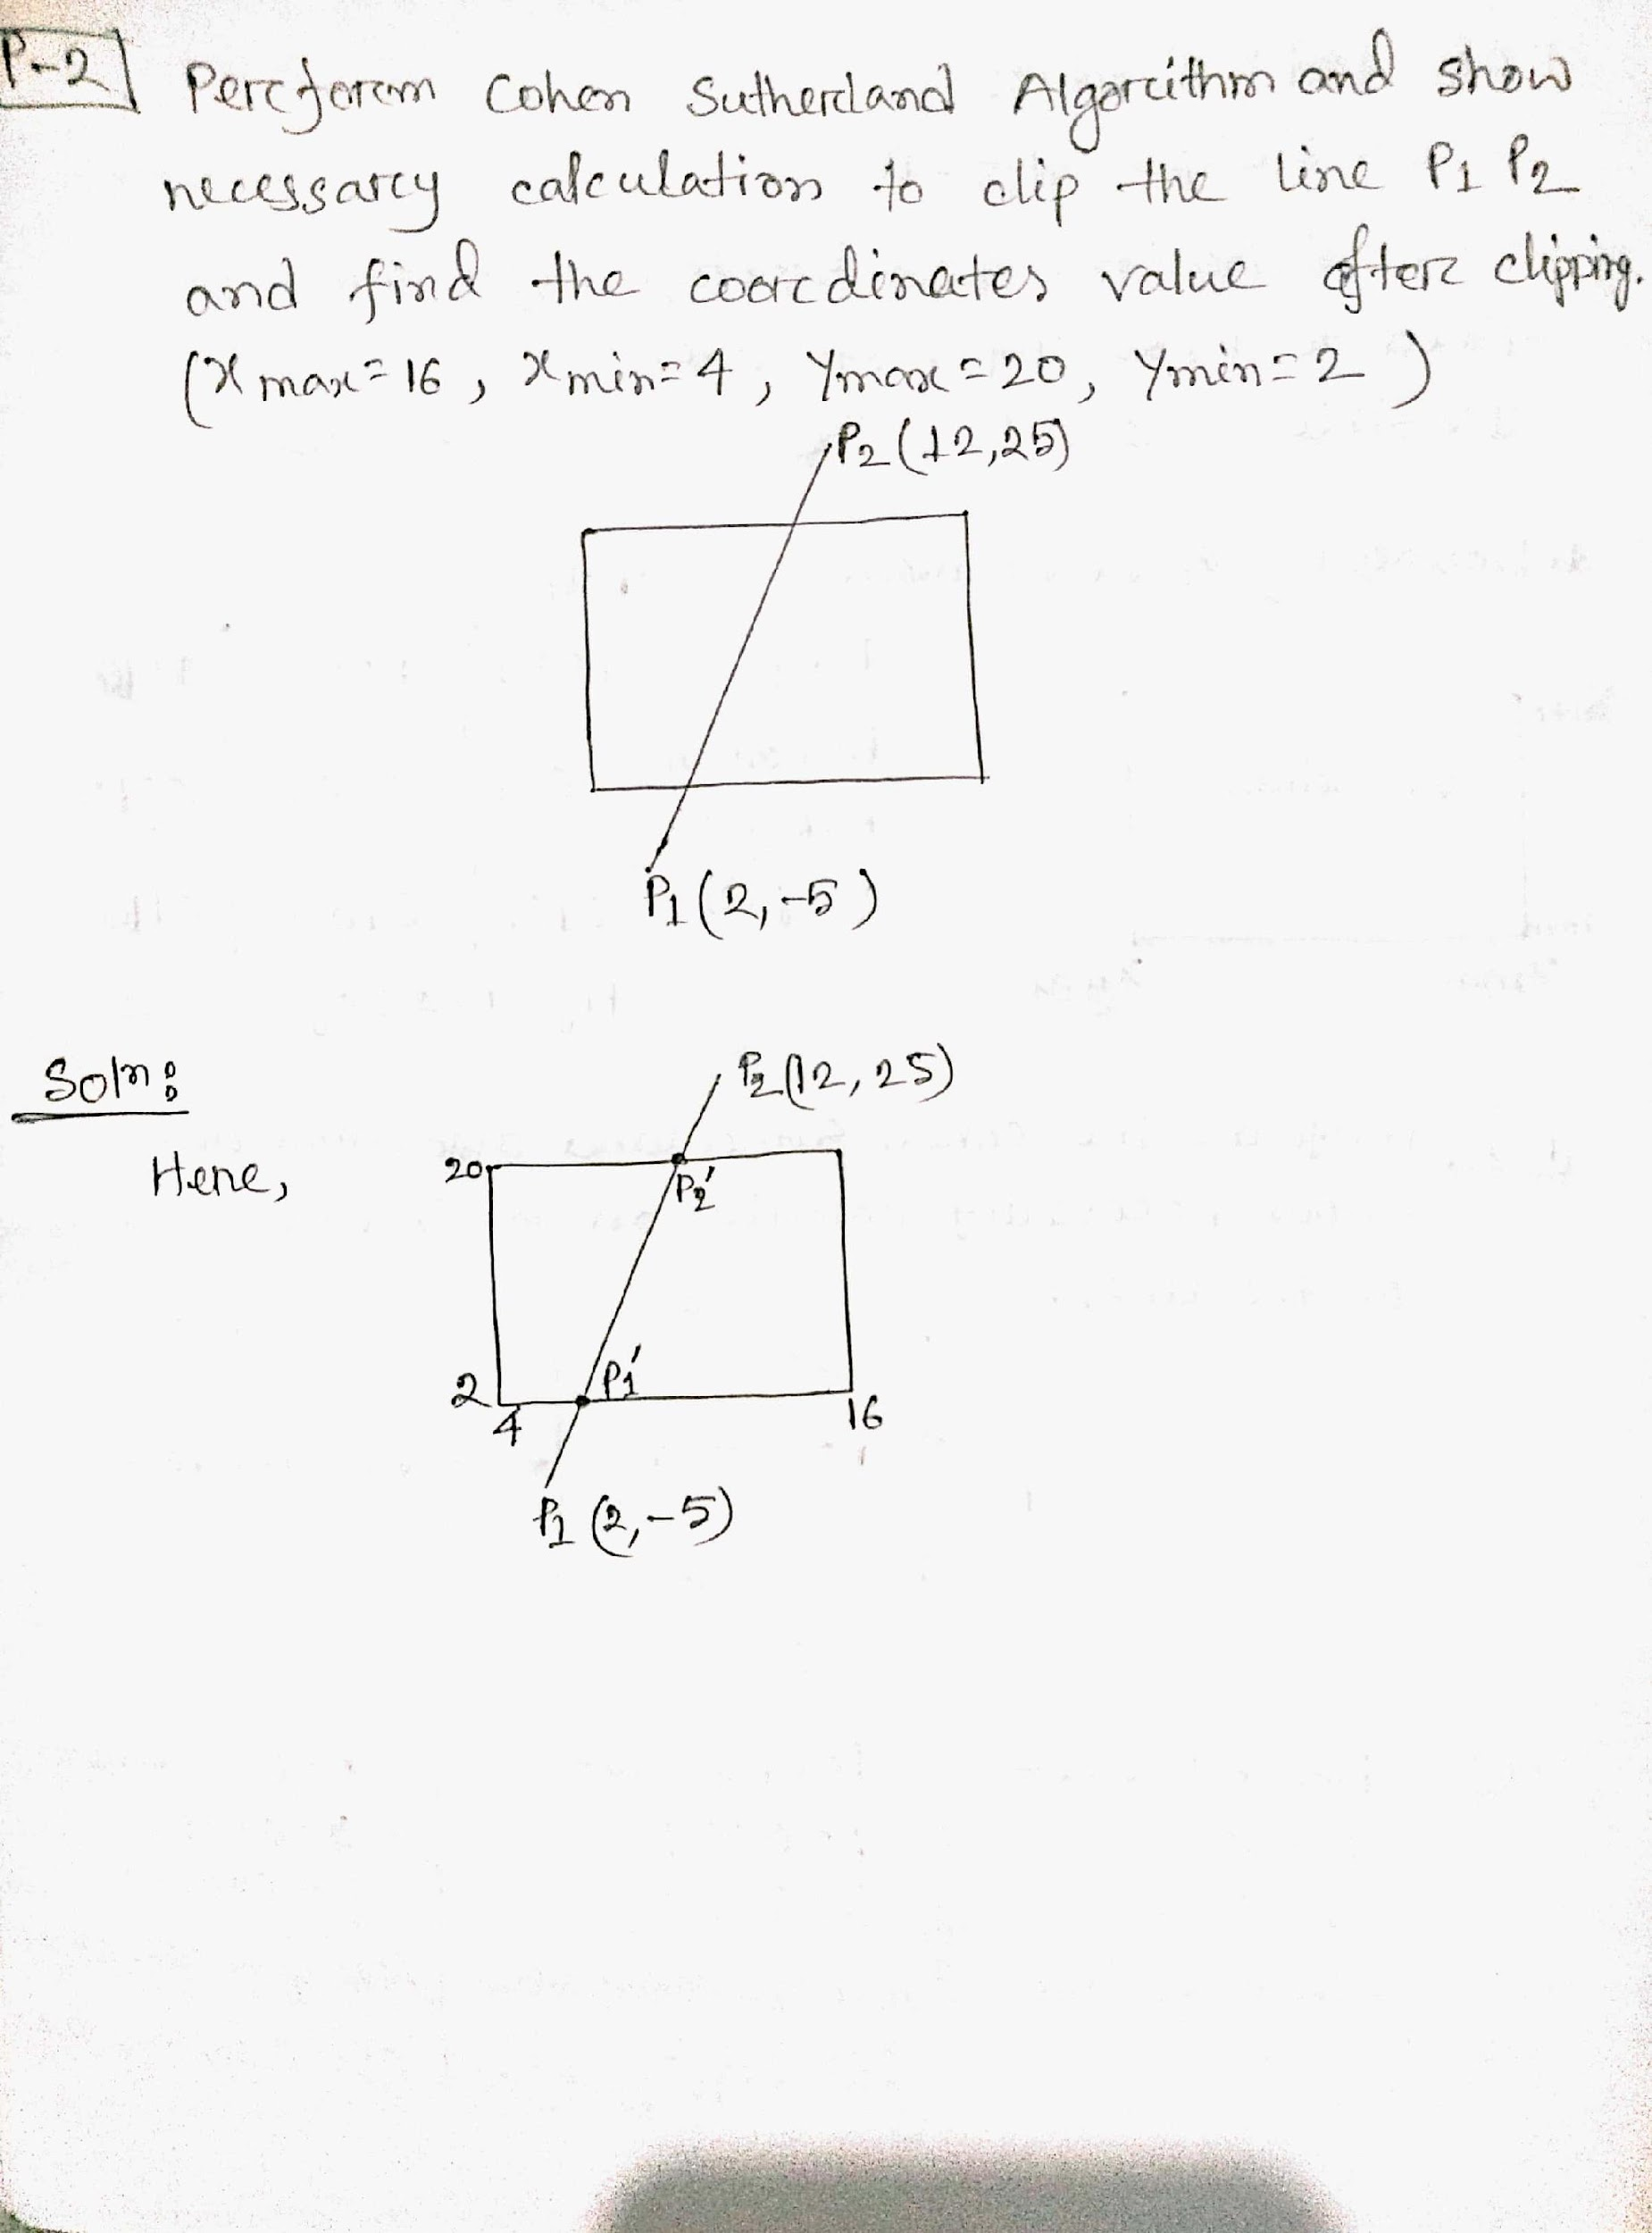 P-2
Percforcm Cohen Suthercland Algorcithm and show
necessarcy calculation to clip the line P1 P2
and find the coorcdinates value afterc clipping.
(x max = 16, x min = 4, Ymax = 20, Ymin = 2)
P2 (12,25)
P1 (2,-5)
Soln:
Here,
P2 (12,25)
20
P2'
P1'
2
4
16
P1 (2,-5)